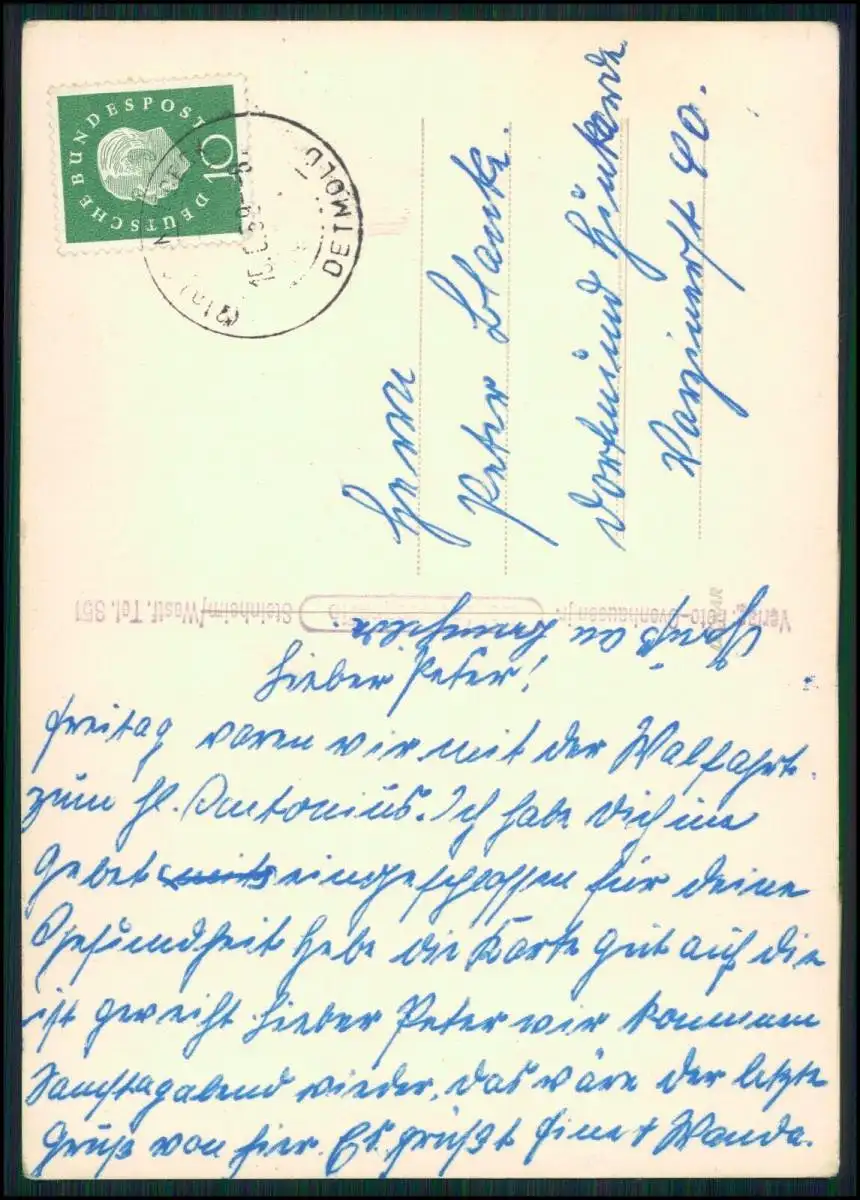 DEUTSCHE BUNDESPOST
10
DETMOLD
Herrn
Peter Blank.
Dortmund
40.
Verlag: Foto-Evenhausen jr. Steinheim/Westf. Tel. 351
Lieber Peter!
Freitag waren wir mit der Walfahrt
zum hl. Antonius. Ich habe dich ins
Gebet eingeschlossen für deine
Gesundheit hebe die Karte gut auf die
ist geweiht Lieber Peter wir kommen
Samstagabend wieder, das wäre der letzte
Gruß von hier. Es grüßt + Wanda.
Gruß an